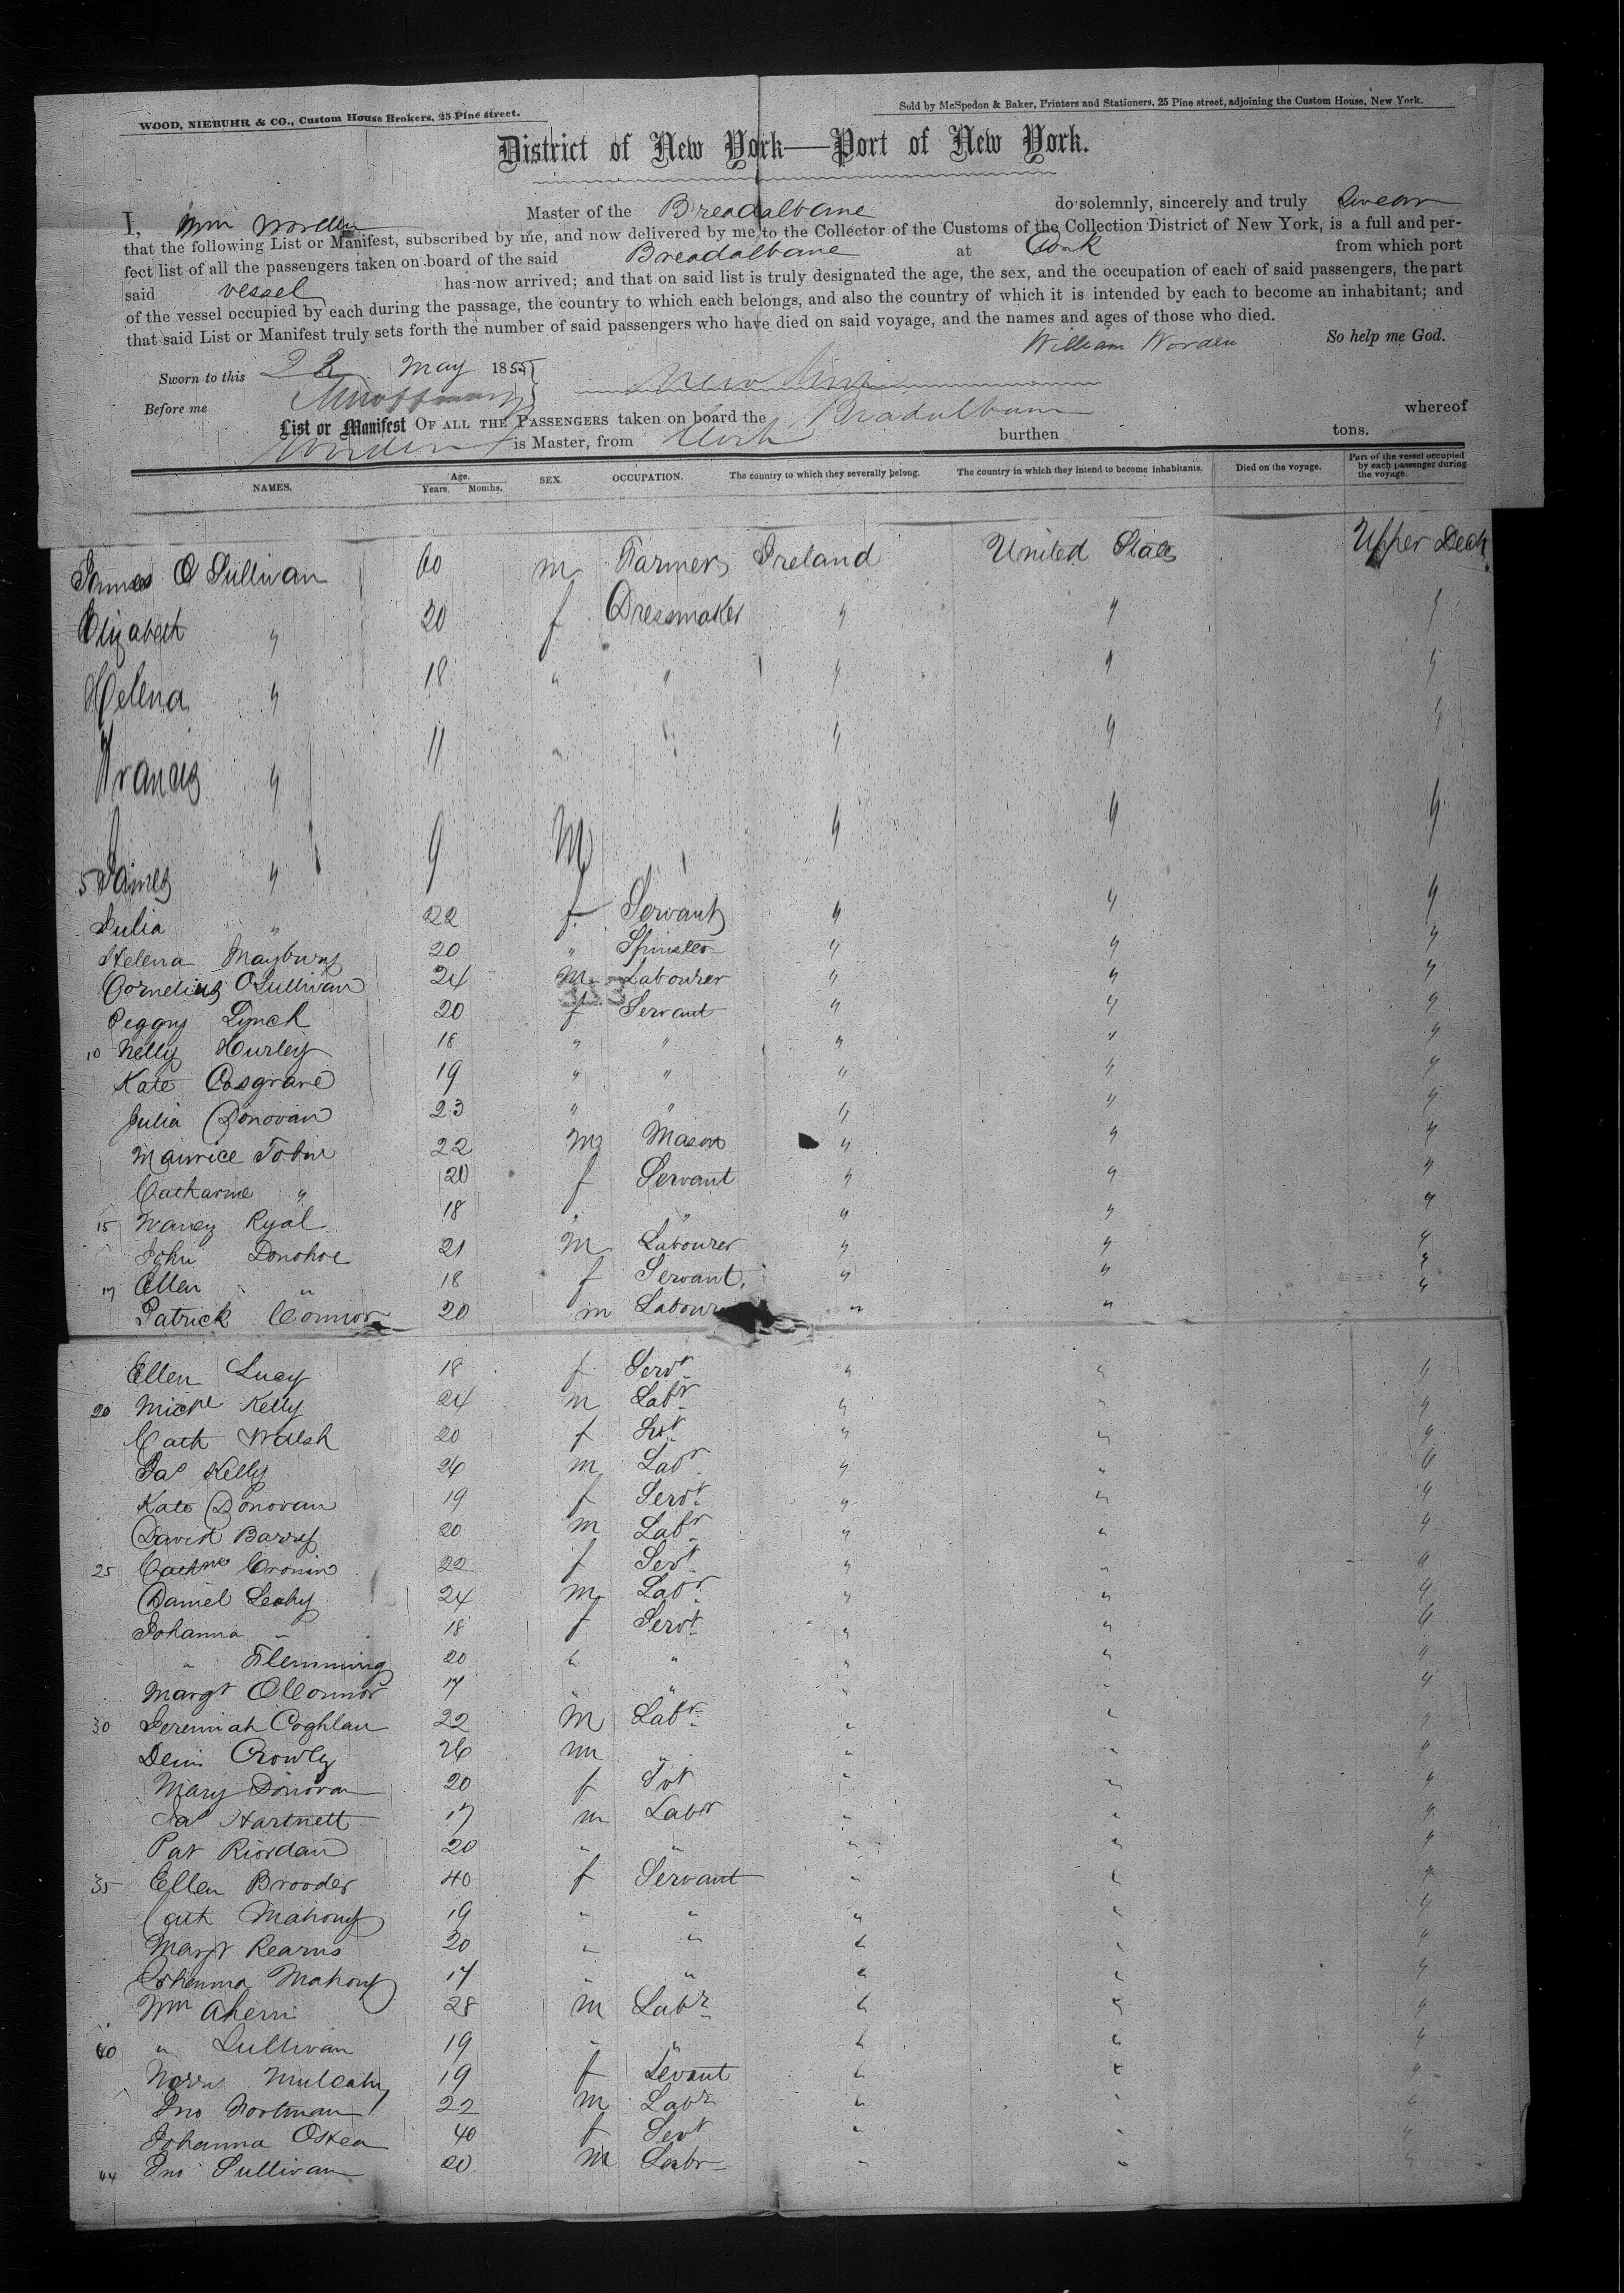 WOOD, NIEBUHR & CO., Custom House Brokers, 25 Pine street.
Sold by McSpedon & Baker, Printers and Stationers, 25 Pine street, adjoining the Custom House, New York.
District of New York—Port of New York.
I, Wm Worden Master of the Breadalbane do solemnly, sincerely and truly swear
that the following List or Manifest, subscribed by me, and now delivered by me to the Collector of the Customs of the Collection District of New York, is a full and per-
fect list of all the passengers taken on board of the said Breadalbane at Cork from which port
said vessel has now arrived; and that on said list is truly designated the age, the sex, and the occupation of each of said passengers, the part
of the vessel occupied by each during the passage, the country to which each belongs, and also the country of which it is intended by each to become an inhabitant; and
that said List or Manifest truly sets forth the number of said passengers who have died on said voyage, and the names and ages of those who died.
So help me God.
William Worden
Sworn to this 22 May 185
Before me
List or Manifest OF ALL THE PASSENGERS taken on board the Bradalbane whereof
Worden is Master, from Cork burthen tons.
NAMES. Age. Years. Months. SEX. OCCUPATION. The country to which they severally belong. The country in which they intend to become inhabitants. Died on the voyage. Part of the vessel occupied by each passenger during the voyage.
James O Sullivan 60 m Farmer Ireland United States Upper Deck
Elizabeth " 20 f Dressmaker " " "
Helena " 18 " " " " "
Francis " 11 " " " " "
5 James " 9 M " " "
Julia " 22 f Servant " " "
Helena Maybury 20 " Spinster " " "
Cornelius OSullivan 24 M Labourer " " "
Peggy Lynch 20 f Servant " " "
10 Nelly Hurley 18 " " " " "
Kate Cosgrave 19 " " " " "
Julia Donovan 23 " " " " "
Maurice Tobin 22 m Mason " " "
Catharine " 20 f Servant " " "
15 Nancy Ryal 18 " " " " "
John Donohoe 21 M Labourer " " "
17 Ellen " 18 f Servant " " "
Patrick Connor 20 m Labour " " "
Ellen Lucy 18 f Servt " " "
20 Michl Kelly 24 m Labr " " "
Cath Walsh 20 f Svt " " "
Jas Kelly 26 m Labr " " "
Kate Donovan 19 f Servt " " "
David Barry 20 m Labr " " "
25 Cathne Cronin 22 f Servt " " "
Daniel Leahy 24 m Labr " " "
Johanna " 18 f Servt " " "
" Flemming 20 " " " " "
Margt OConnor 17 " " " " "
30 Jeremiah Coghlan 22 M Labr " " "
Denis Crowly 26 m " " " "
Mary Donovan 20 f Svt " " "
Jas Hartnett 17 m Labr " " "
Pat Riordan 20 " " " " "
35 Ellen Brooder 40 f Servant " " "
Cath Mahony 19 " " " " "
Margt Kearns 20 " " " " "
Johanna Mahony 17 " " " " "
Wm Ahern 28 m Labr " " "
40 " Sullivan 19 " " " " "
Mulcahy 19 f Sevant " " "
Jno 22 m Labr " " "
Johanna OShea 40 f Sevt " " "
44 Jno Sullivan 20 m Labr " " "